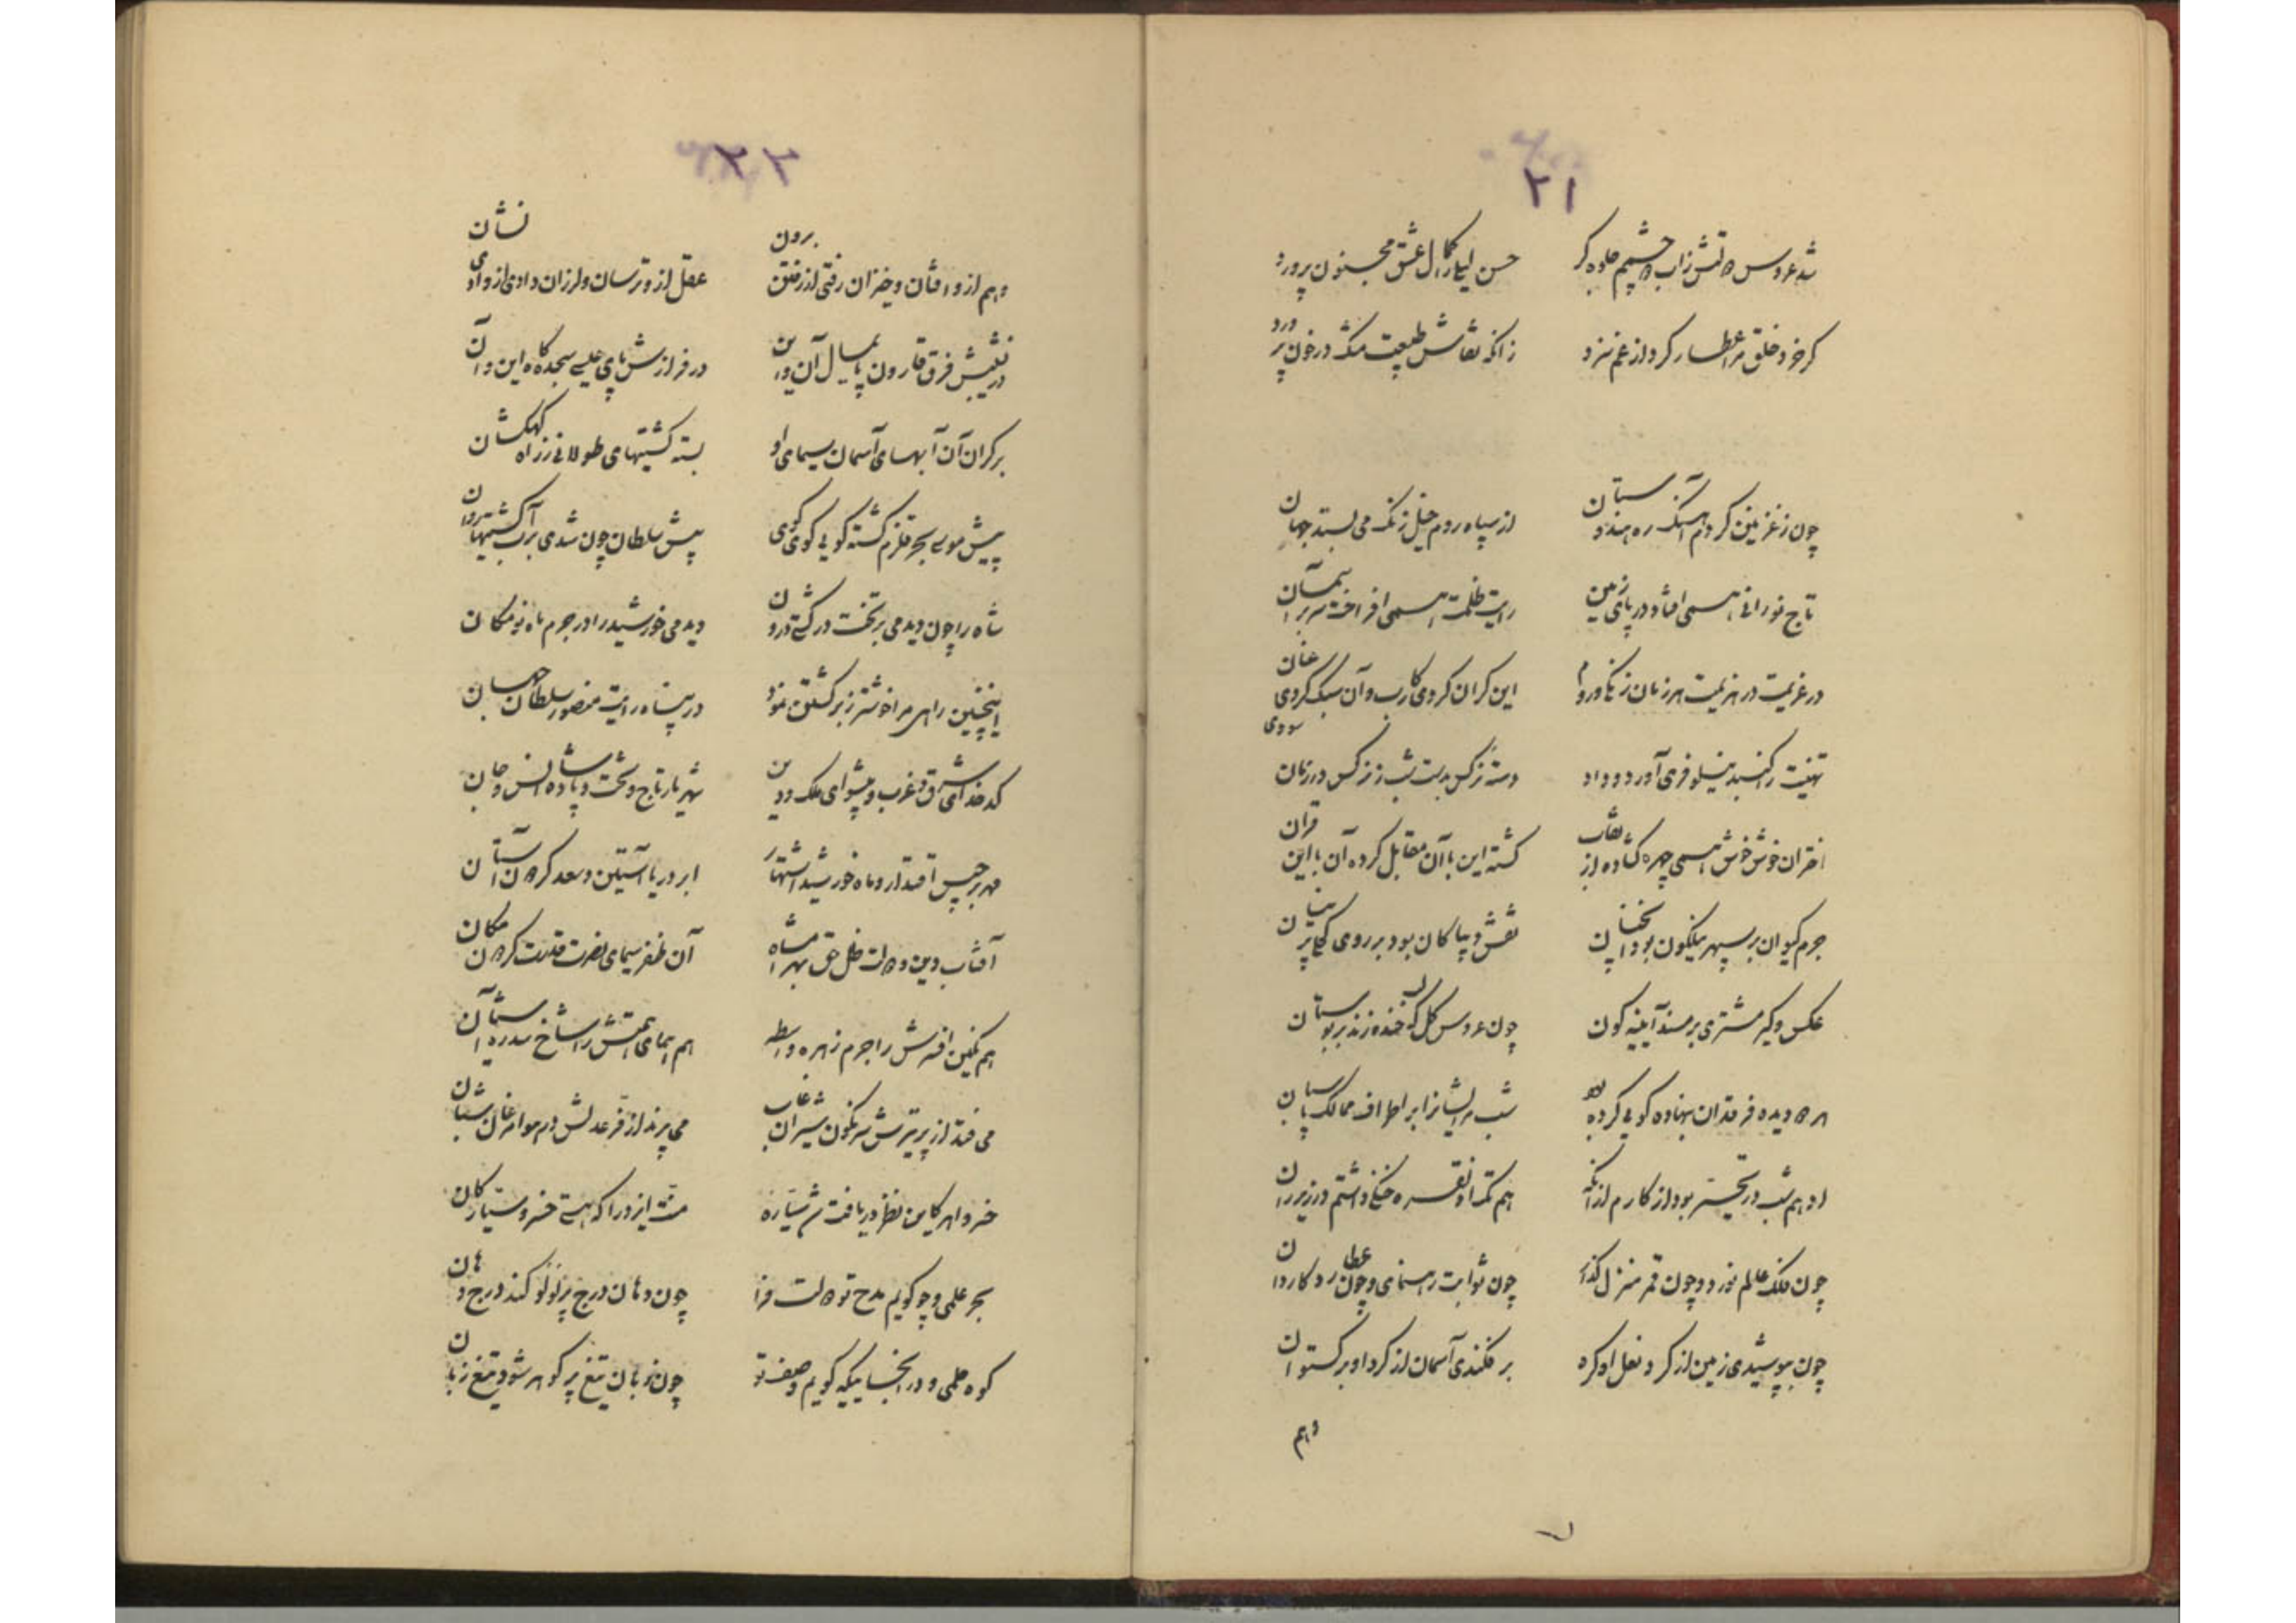 ۲۱
شد عروس دانش زاب چشمم جلوه گر
حسن لیلا را کمال عشق مجنون پرورد
گر خرد خلق مرا عطار کرد از غم سزد
زانکه نقاش طبیعت مشک در خون پرورد
چون ز غزنین کردم آهنگ ره هندوستان
از سپاه روم خیل زنگ می بستد جهان
تاج نورانی همی افتاد در پای زمین
رایت ظلمت همی افراخت سر بر آسمان
در عزیمت در هزیمت هر زمان زنگی و روم
این گران کردی رکاب و آن سبک کردی عنان
تهنیت را گنبد نیلوفری آورد و داد
دسته نرگس بدست شب ز نرگس در زمان
اختران خوش خوش همی چهره گشاده از نقاب
گشته این با آن مقابل کرده آن با این قران
جرم کیوان بر سپهر نیلگون بود آنچنان
نقش پیکان بود بر روی
عکس دیگر مشتری بر مسند آیینه گون
چون عروس گل که خنده زند بر بوستان
هر دو دیده فرقدان بنهاده گویی کرده بود
شب مر ایشانرا بر اطراف ممالک پاسبان
ادهم شب در تحیر بود از کارم از آنکه
هم تک او نقره خنگی داشتم در زیر ران
چون فلک عالم نورد و چون قمر منزل گذار
چون ثوابت رهنمای و چون عطارد کاردان
چون بپوشیدی زمین از گرد نعل او کره
بر فکندی آسمان از گرد او برگستوان
وهم
۲۲
وهم ازو افتان و خیزان رفتی ار رفتی برون
عقل ازو ترسان و لرزان دادی ار دادی نشان
در نشیبش فرق قارون پایمال آن و این
در فرازش پای عیسی سجده گاه این و آن
بر کران آن آبهای آسمان سیمای او
بسته کشتیهای طولانی ز راه کهکشان
پیش موسی بحر قلزم گشته گویی کوی کوی
پیش سلطان چون شدی بر آب کشتیها روان
شاه را چون دیدمی بر تخت در کشتی درون
دیدمی خورشید را در جرم ماه نو مکان
اینچنین راهی مرا خوشتر ز برگشتن نمود
در پناه رایت منصور سلطان جهان
کدخدای شرق و غرب و پیشوای ملک و دین
شهریار تاج و تخت و پادشاه انس و جان
مهر برجیس اقتدار و ماه خورشید اشتهار
ابر دریا آستین و سعد گردون آستان
آفتاب دین و دولت ظل حق بهرامشاه
آن ظفر سیمای نصرت قدرت گردون مکان
هم نگین افسرش را جرم زهره واسطه
هم همای همتش را شاخ سدره آشیان
می فتد از پر تیرش سرنگون شیران غاب
می پرند از فر عدلش در هوا مرغان شبان
منت ایزد را که هستی خسرو سیارگان
بحر علمی و چو گویم مدح تو دولت فزا
چون دهان درج پر لؤلؤ کند درج دهان
کوه حلمی و در آنجائیکه گویم وصف تو
چون زبان تیغ پر گوهر شود تیغ زبان